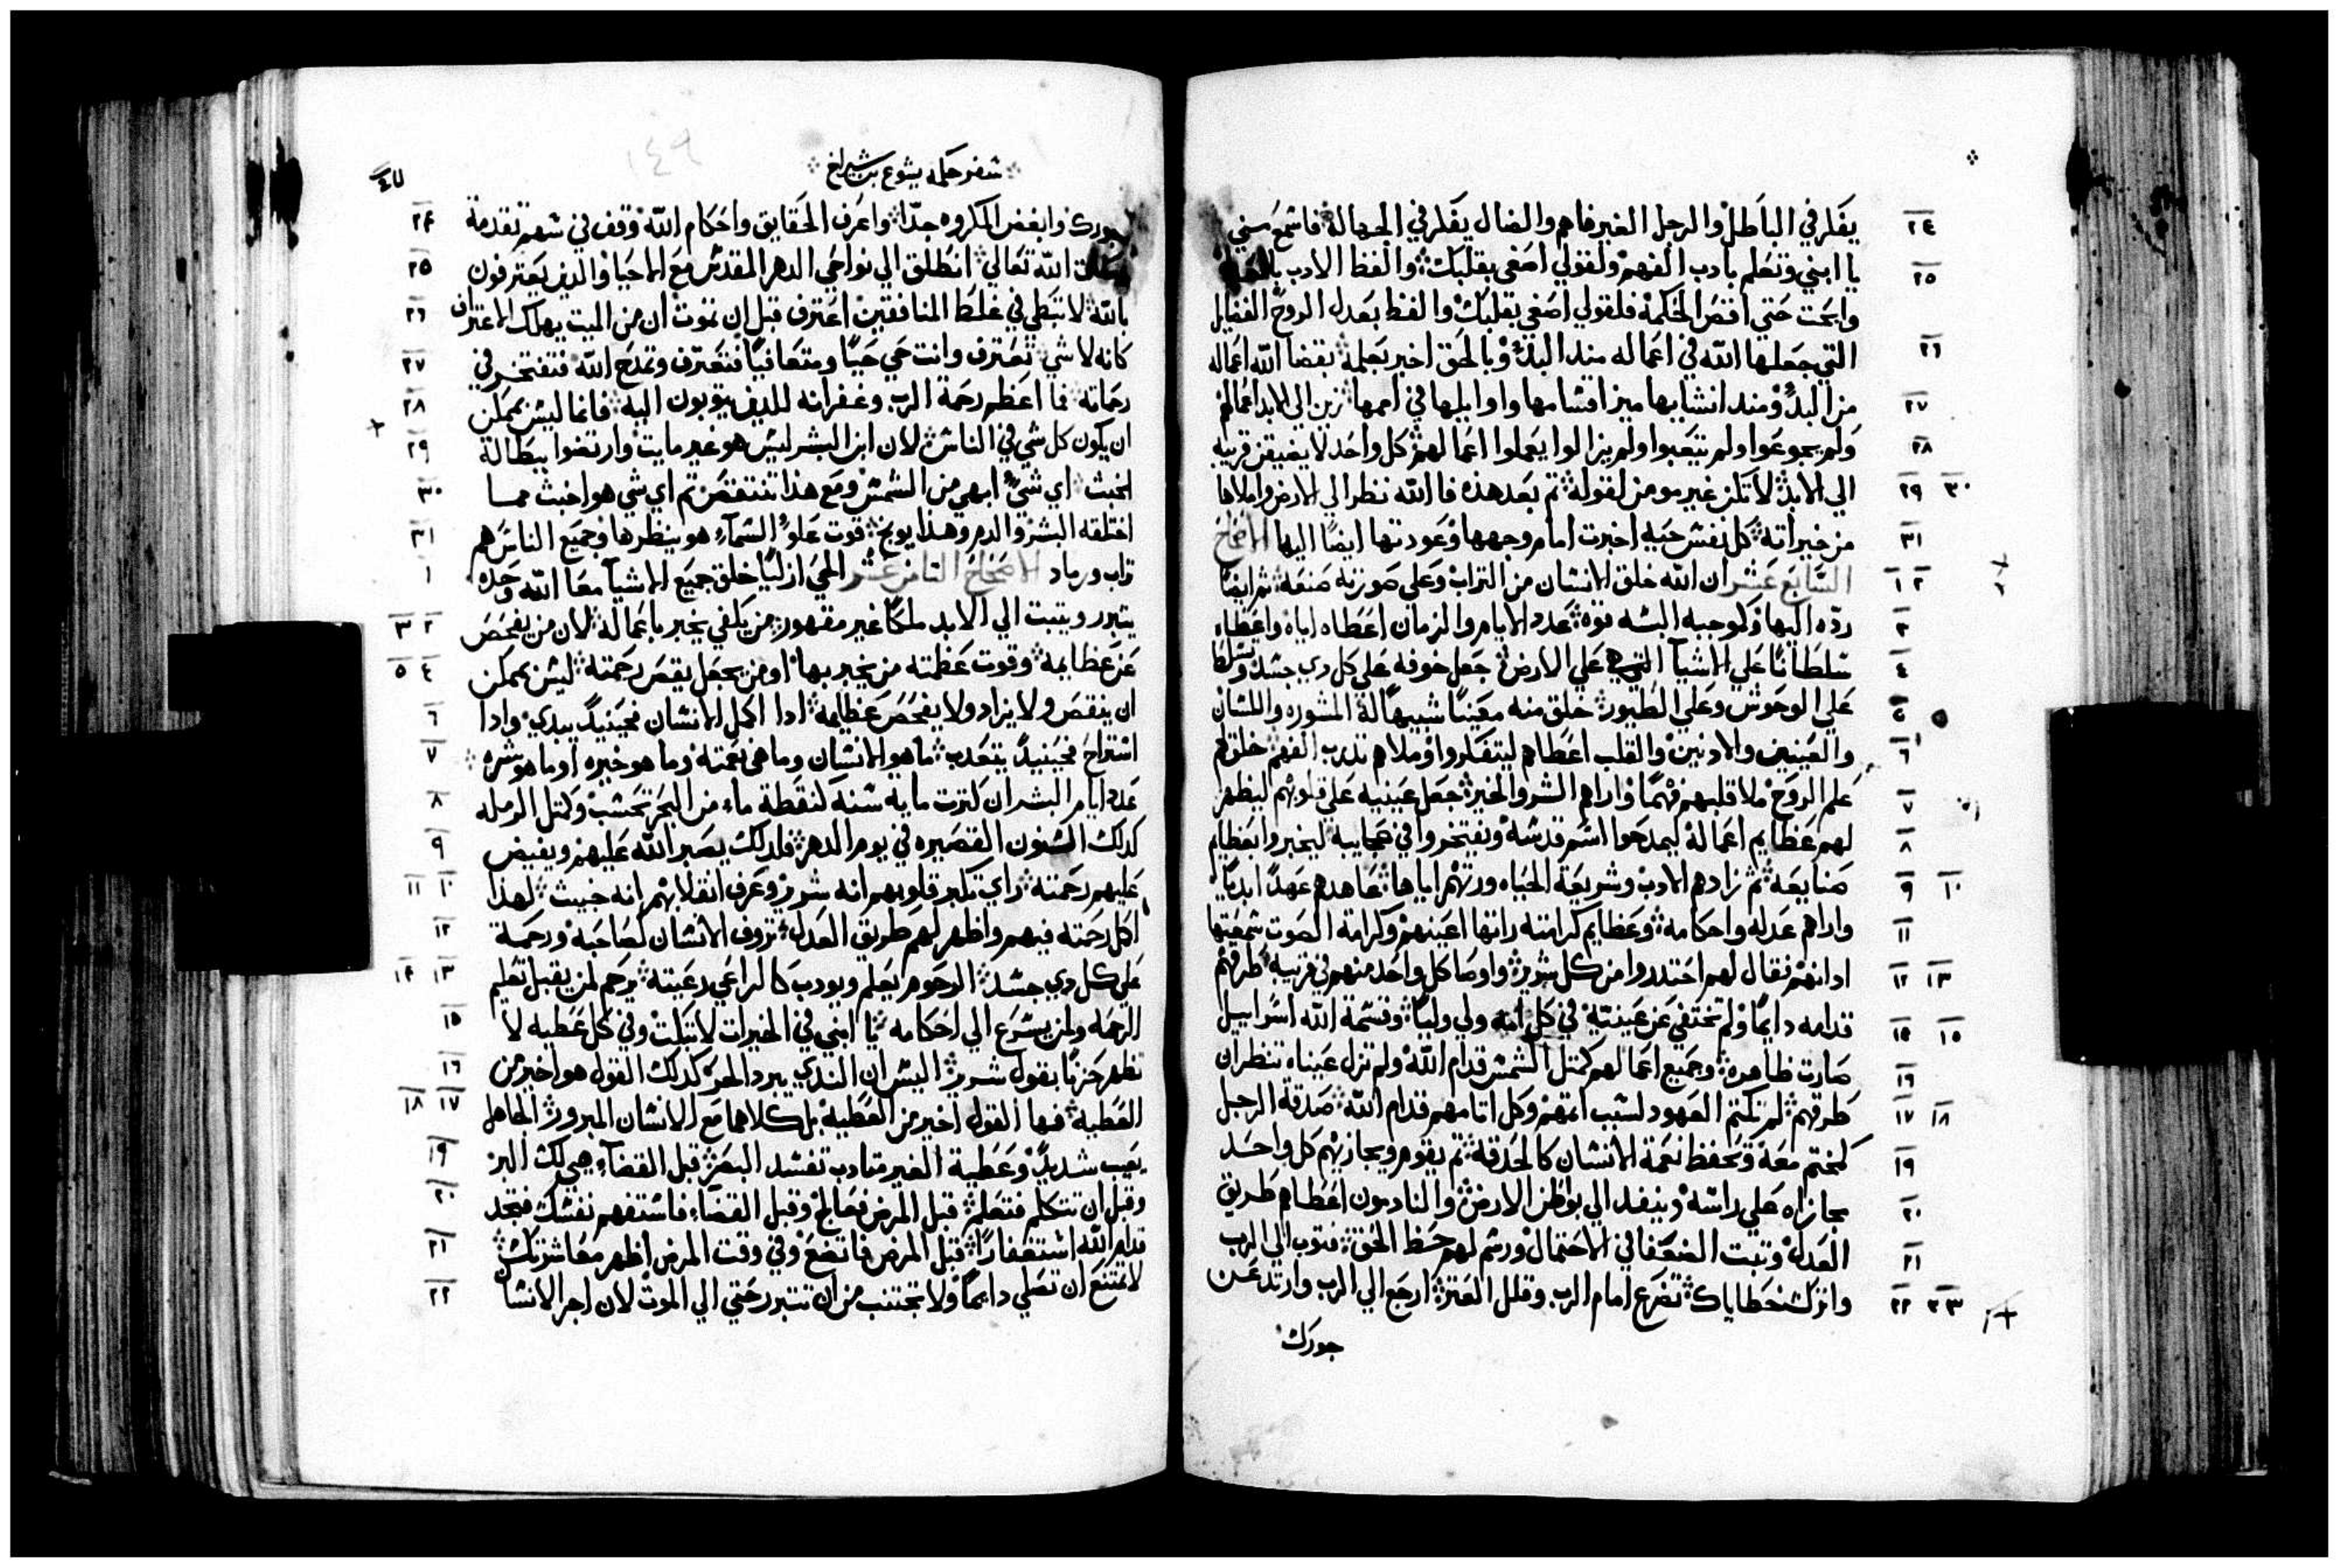 يفكر في الباطل والرجل الغير فاهم والضال يفكر في الجهالة فاسمع مني
٢٤
يا ابني وتعلم بادب الفهم ولقولي اصغي بقلبك والفظ الادب
٢٥
وابحت حتي افتقص الحكمة فلقولي اصغي بقلبك والفظ بعدل الروح الفضايل
التي جعلها الله في اعماله منذ البدء وبالحق اخبر بعلمه بقضا الله اعماله
٢٦
من البدء ومند انشايها ميز اقسامها واوايلها في اممها زين الي الابد اعمالهم
٢٧
ولم يجوعوا ولم يتعبوا ولم يزالوا يعملوا اعمالهم كل واحد لا يضيق قريبه
٢٨
الي الابد لا تكن غير مومن لقوله تم بعد هذه فالله نظر الي الارض واملاها
٢٩ ٣٠
من خيراته كل نفس حيه اخبرت امام وجهها وعودتها ايضا اليها الاصحاح
٣١
السابع عشر ان الله خلق الانسان من التراب وعلي صورته صنعه تم ايضا
١ ٢
رده اليها وكموجبه البسه قوه عدد الايام والزمان اعطاه اياه واعطاه
٣
سلطانا علي الاشيآ التي هي علي الارض جعل خوفه علي كل دي جسد وتسلط
٤
علي الوحوش وعلي الطيور خلق منه معينا شبيها له المشوره واللسان
٥
والعينين والادنين والقلب اعطاهم ليتفكروا وملاهم تدرب الفهم خلق لهم
٦
علم الروح ملا قلبهم فهما واراهم الشر والخير جعل عينيه علي قلوبهم ليظهر
٧
لهم عظايم اعماله ليمدحوا اسم قدسه ونفتخروا في عجايبه ليخبروا بعظايم
٨
صنايعه تم زادهم الادب وشريعة الحياه ورتهم اياها عاهدهم عهدا ابديا
٩ ١٠
واراهم عدله واحكامه وعظايم كرامته راتها اعينهم وكرامة الصوت سمعتها
١١
ادانهم فقال لهم احتدروا من كل شرير واوصا كل واحد منهم في قريبه طرقهم
١٢ ١٣
قدامه دايما ولم تختفي عن عينيه في كل امه ولي وليا وقسمة الله اسراييل
١٥ ١٥
صارت ظاهره وجميع اعمالهم كمتل الشمس قدام الله ولم تزل عيناه تنظران
١٦
طرقهم لم تكتم العهود لسبب اتمهم وكل اتامهم قدام الله صدقة الرجل
١٧ ١٨
كختم معه وتحفظ نعمة الانسان كالحدقه تم يقوم ويجازيهم كل واحد
١٩
مجازاه علي راسه وينفد الي بواطن الارض والنادمون اعطاهم طريق
٢٠
العدل وتبت الضعفا في الاحتمال ورسم لهم حظ الحق فتوب الي الرب
٢١
واترك خطاياك تضرع امام الرب وقلل العترة ارجع الي الرب وارتد عن
٢٢ ٢٣
جورك
سفر حكمة يشوع بن سيراخ
١٤٩
جورك وابغض المكروه جدا واعرف الحقايق واحكام الله وقف في سهم تقدمة
٢٤
الله تعالي انطلق الي نواحي الدهر المقدس مع الاحيا والدين يعترفون
٢٥
بالله لا تبطي في غلط المنافقين اعترف قبل ان تموت ان من الميت يهلك الاعتراف
٢٦
كانه لا شي تعترف وانت حي حيا ومتعافيا فتعترف وتمدح الله فتفتخر في
٢٧
رحماته فما اعظم رحمة الرب وغفرانه للدين يتوبون اليه فانما ليس يمكن
٢٨
ان يكون كل شي في الناس لان ابن البشر ليس هو غير مايت وارتضوا ببطالة
٢٩
الخبث اي شي ابهي من الشمس ومع هذا تنتقص تم اي شي هو اخبث مما
٣٠
اختلقه البشر والدم وهذا يوبخ قوت علو السمآء هو ينظرها وجميع الناس هم
٣١
تراب ورماد الاصحاح التامن عشر الحي ازليا خلق جميع الاشيآ معا الله وحده
١
يتبرر ويتبت الي الابد ملكا غير مقهور من يكفي يخبر باعماله لان من يفحص
٢ ٣
عن عظايمه وقوت عظمته من يخبر بها او من يجعل يقص رحمته ليس يمكن
٤ ٥
ان ينقص ولا يزاد ولا يفحص عظايمه ادا اكمل الانسان فحينيد يبدي وادا
٦
استراح فحينيد يتعدب ما هو الانسان وما هي نعمته وما هو خيره اوما هو شره
٧
عدد ايام البشر ان كترت مايه سنه كنقطة مآء من البحر تحسب وكمتل الرمله
٨
كدلك السنون القصيره في يوم الدهر فلدلك يصبر الله عليهم ويفيض
٩
عليهم رحمته راي تكبر قلوبهم انه شرير وعرف انقلابهم انه خبيث لهذا
١٠ ١١
اكمل رحمته فيهم واظهر لهم طريق العدل تروف الانسان لصاحبه ورحمة
١٢
علي كل دي جسد الرحوم يعلم ويودب كالراعي رعيته يرحم لمن يقبل تعليم
١٣ ١٤
الرحمه ولمن يسرع الي احكامه يا ابني في الخيرات لا تبكت وفي كل عطيه لا
١٥
تظهر حزنا بقول شرير اليس ان الندي يبرد الحر كدلك القول هو اخير من
١٦
العطية فها القول اخير من العطيه بل كلاهما مع الانسان المبرور الجاهل
١٧ ١٨
يعيب شديدا وعطية الغير متادب تفسد البصر قبل القضآء هي لك البر
١٩
وقبل ان تتكلم فتعلم قبل المرض فعالج وقبل القضآء فاستفهم نفسك فتجد
٢٠
قدام الله استغفارا قبل المرض فاتضع وفي وقت المرض اظهر معاشرتك
٢١
لا تمتنع ان تصلي دايما ولا تجتنب من ان تتبرر حتي الي الموت لان اجر الانسان
٢٢